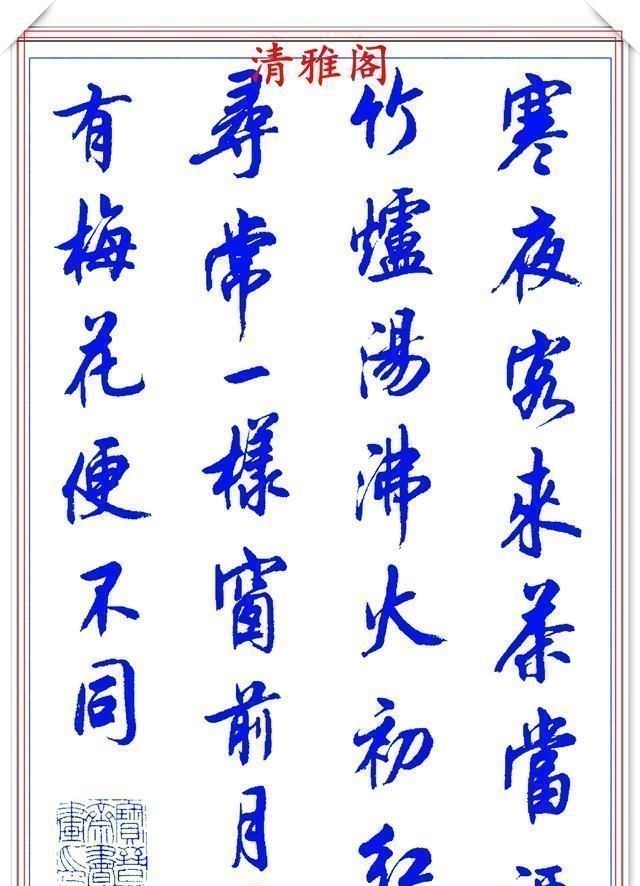 清雅阁
寒夜客來茶當
竹爐湯沸火初紅
尋常一樣窗前月
有梅花便不同